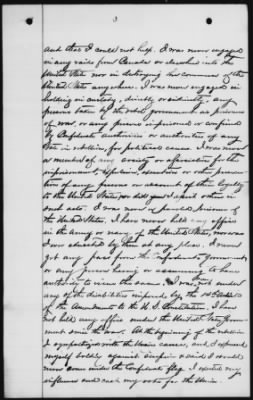 3
and that I could not help. I was never engaged
in any raids from Canada or elsewhere into the
United States nor in destroying the commerce of the
United States anywhere. I was never engaged in
holding in custody, directly or indirectly, any
persons taken by the rebel government as prisoners
of war, or any person imprisoned or confined
by Confederate authorities or authorities of any
State in rebellion, for political causes. I was never
a member of any society or association for the
imprisonment, expulsion, execution or other persecu-
tion of any persons on account of their loyalty
to the United States, nor did I ever assist in
such acts. I was never a paroled prisoner of
the United States. I have never held any office
in the army or navy of the United States, nor was
I ever educated by them at any place. I never
got any pass from the Confederate government
or any person having or assuming to have
authority to issue the same. I was not under
any of the disabilities imposed by the 14th Article
of the Amendments to the U.S. Constitution. I have
not held any office under the United States Govern-
ment since the war. At the beginning of the rebellion
I sympathized with the Union cause, and I expressed
myself boldly against secession and said I would
never come under the Confederate flag. I exerted my
influence and cast my vote for the Union.